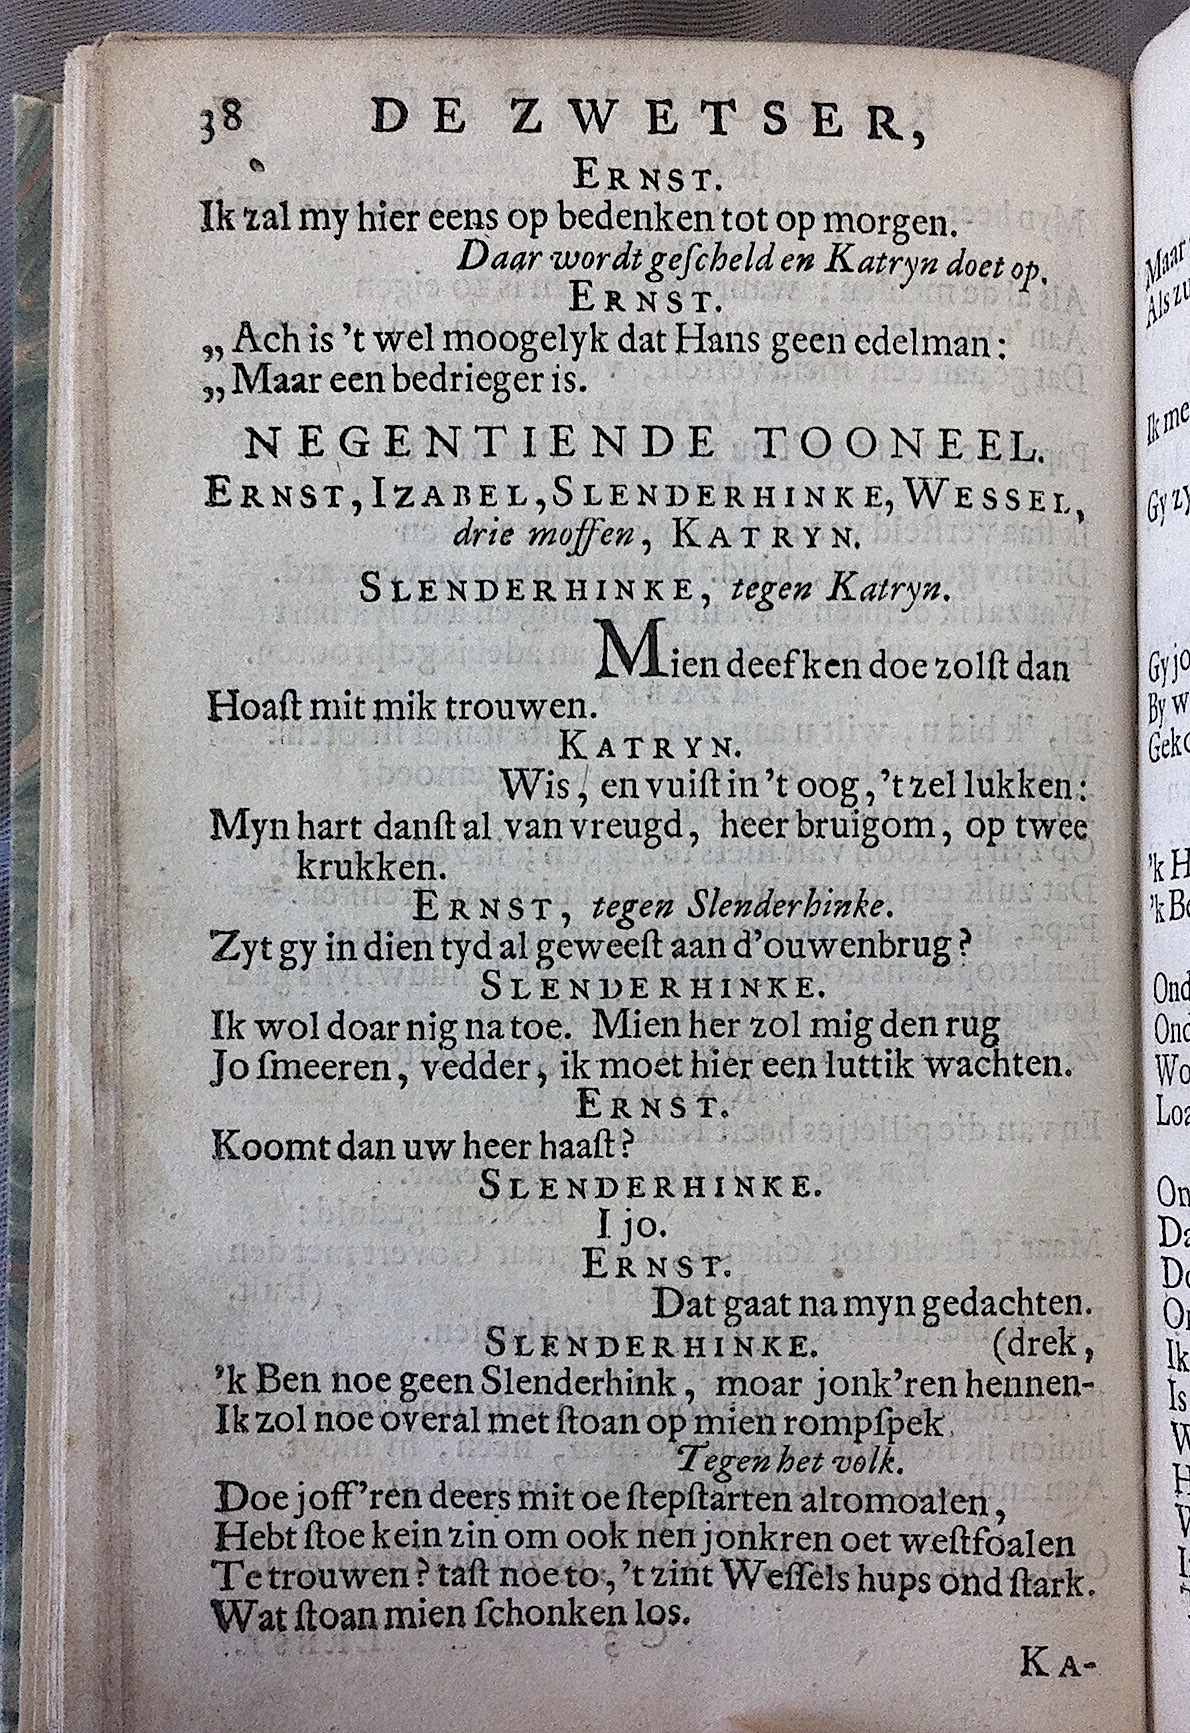 38 DE ZWETSER,
ERNST.
Ik zal my hier eens op bedenken tot op morgen.
Daar wordt geſcheld en Katryn doet op.
ERNST.
„Ach is 't wel moogelyk dat Hans geen edelman:
„Maar een bedrieger is.
NEGENTIENDE TOONEEL.
ERNST, IZABEL, SLENDERHINKE, WESSEL,
drie moffen, KATRYN.
SLENDERHINKE, tegen Katryn.
Mien deefken doe zolſt dan
Hoaſt mit mik trouwen.
KATRYN.
Wis, en vuiſt in 't oog, 't zel lukken:
Myn hart danſt al van vreugd, heer bruigom, op twee
krukken.
ERNST, tegen Slenderhinke.
Zyt gy in dien tyd al geweeſt aan d'ouwenbrug?
SLENDERHINKE.
Ik wol doar nig na toe. Mien her zol mig den rug
Jo ſmeeren, vedder, ik moet hier een luttik wachten.
ERNST.
Koomt dan uw heer haaſt?
SLENDERHINKE.
I jo.
ERNST.
Dat gaat na myn gedachten.
SLENDERHINKE. (drek,
'k Ben noe geen Slenderhink, moar jonk'ren hennen-
Ik zol noe overal met ſtoan op mien rompſpek
Tegen het volk.
Doe joff'ren deers mit oe ſtepſtarten altomoalen,
Hebt ſtoe kein zin om ook nen jonkren oet weſtfoalen
Te trouwen? taſt noe to, 't zint Weſſels hups ond ſtark.
Wat ſtoan mien ſchonken los.
KA-
Maar
Als zu
Ik me
Gy zy
Gy jo
By w
Geko
'k H
'k Be
Ond
Ond
Wo
Loa
On
Da
Do
On
Ik
Is
W
H